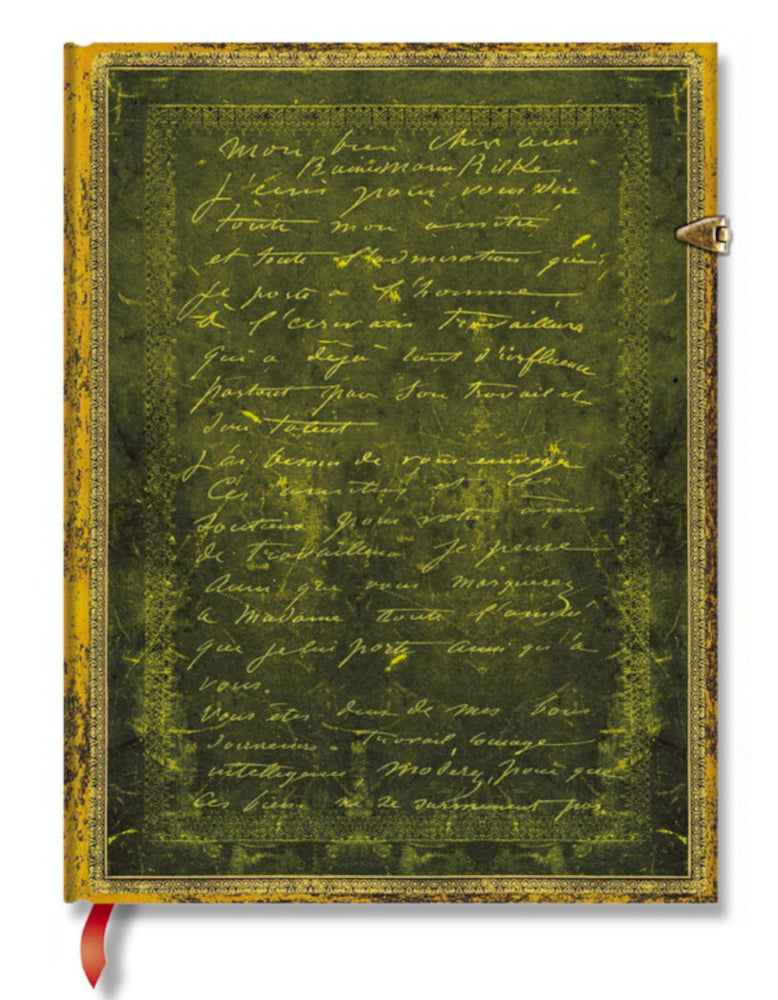 mon bien cher ami
Rainer Maria Rilke
J'écris pour vous dire
toute mon amitié
et toute l'admiration que
je porte à l'homme
à l'écrivain travailleur
qui a déjà tant d'influence
partout par son travail et
son talent
J'ai besoin de vous envoyer
Ces amitiés et
soutiens pour votre
de travailleur. Je pense
Aussi que vous
a Madame toute l'amitié
que je lui porte Ainsi qu'à
vous.
Vous êtes deux de mes bons
souvenirs. Travail courage
intelligence, pour que
Ces biens ne se surmènent pas.